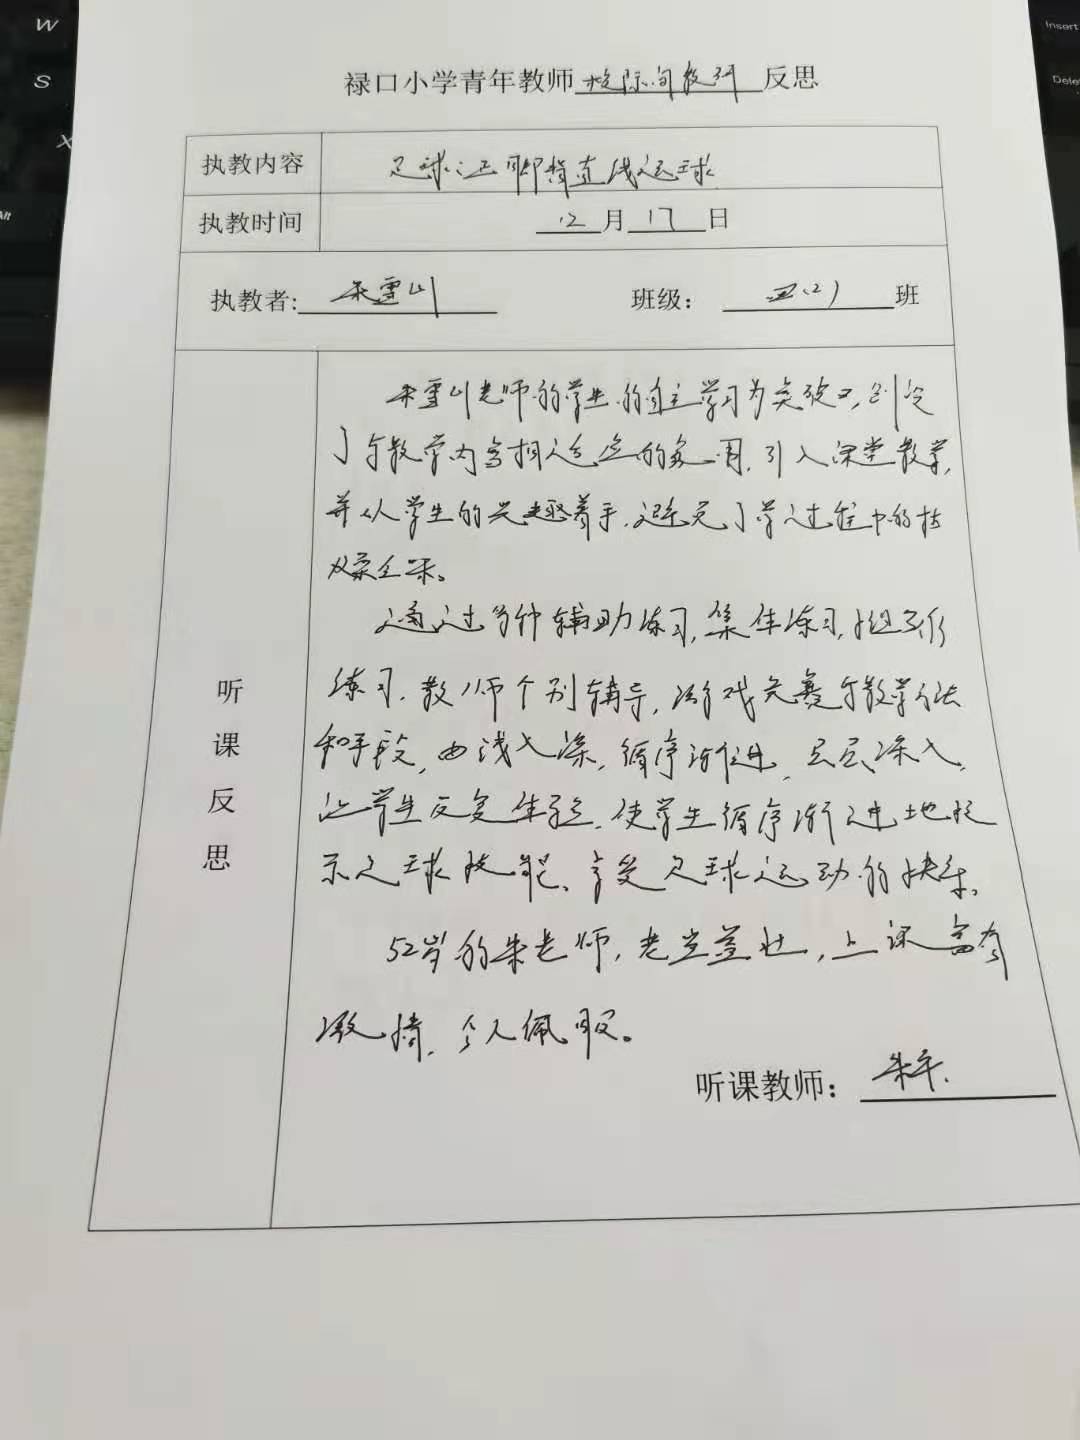 W
S
X
Alt
Insert
Dele
禄口小学青年教师校际间教研反思
执教内容 足球：正脚背直线运球
执教时间 12月17日
执教者: 朱雪山 班级： 四(2) 班
听课反思
朱雪山老师的学生的自主学习为突破口，创设
了与教学内容相适应的 ，引入课堂教学，
并从学生的兴趣着手，避免了学过程中的枯
燥乏味。
通过多种辅助练习，集体练习，
练习，教师个别辅导，游戏竞赛等教学方法
和手段，由浅入深，循序渐进，层层深入，
让学生反复体验，使学生循序渐进地
足球技能、享受足球运动的快乐。
52岁的朱老师，老当益壮，上课富有
激情，令人佩服。
听课教师：